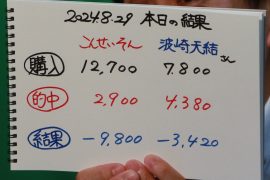 2024.8.29 本日の結果
こんせいそん 波崎天結さん
購入 12,700 7.800
的中 2,900 4.380
結果 -9,800 -3,420